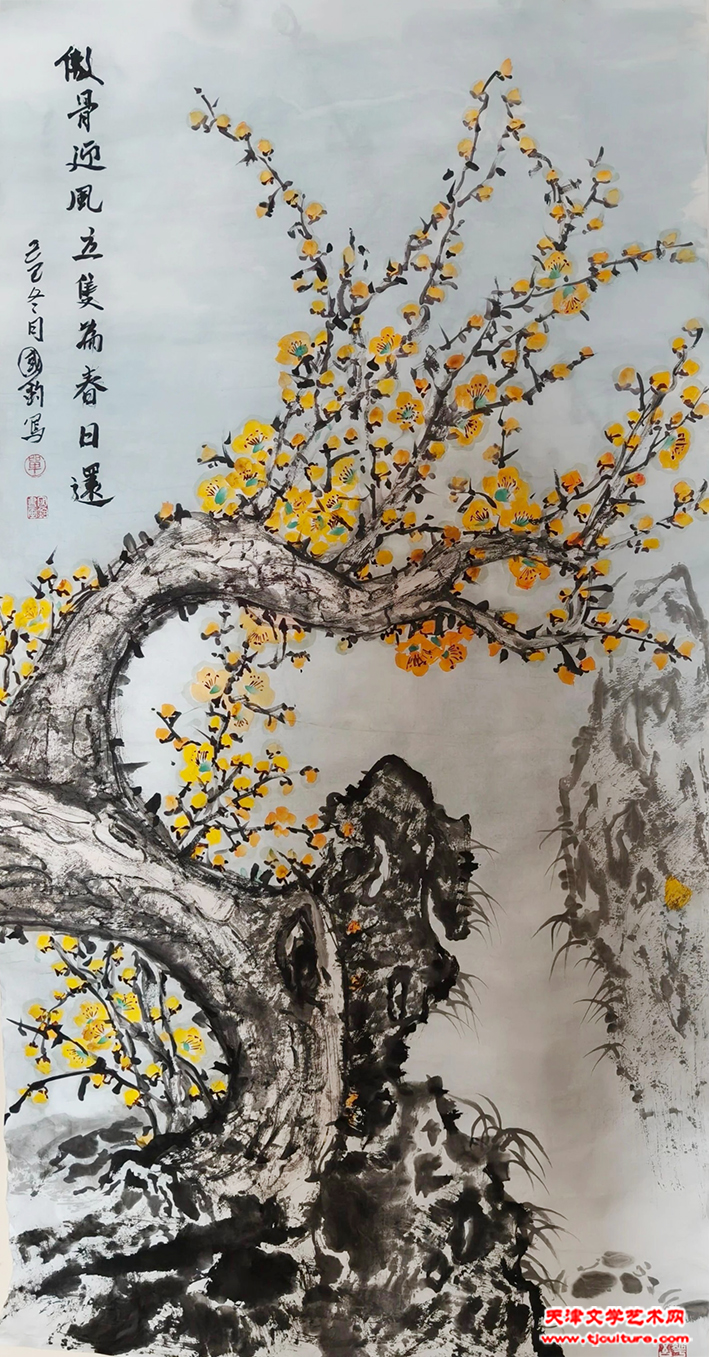 傲骨迎风立隻为春日還
己亥冬月國剑写
單
天津文学艺术网
www.tjculture.com